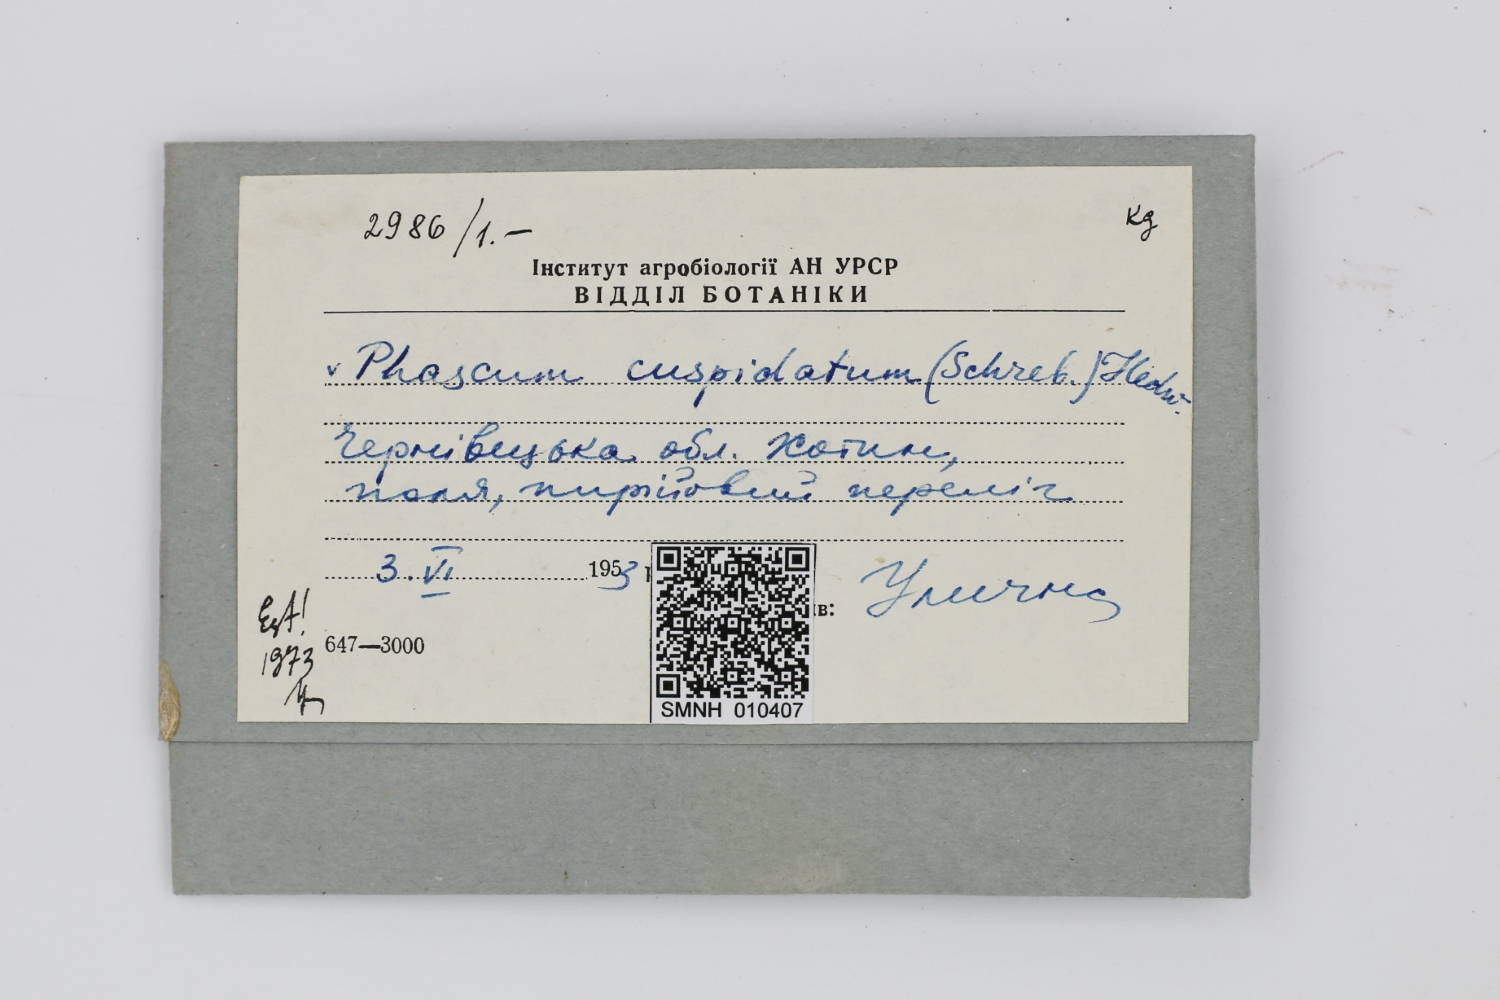 2986/1.—
Кд
Інститут агробіології АН УРСР
ВІДДІЛ БОТАНІКИ
v Phascum cuspidatum (Schreb.) Hedw.
Чернівецька обл. Хотин,
поля, пирійовий переліг
3.VI 1953 р
кв: Улична
1973
647—3000
SMNH 010407